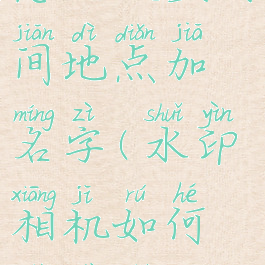 jiān dì diǎn jiā
间地点加
míng zì shuǐ yìn
名字(水印
xiāng jī rú hé
相机如何